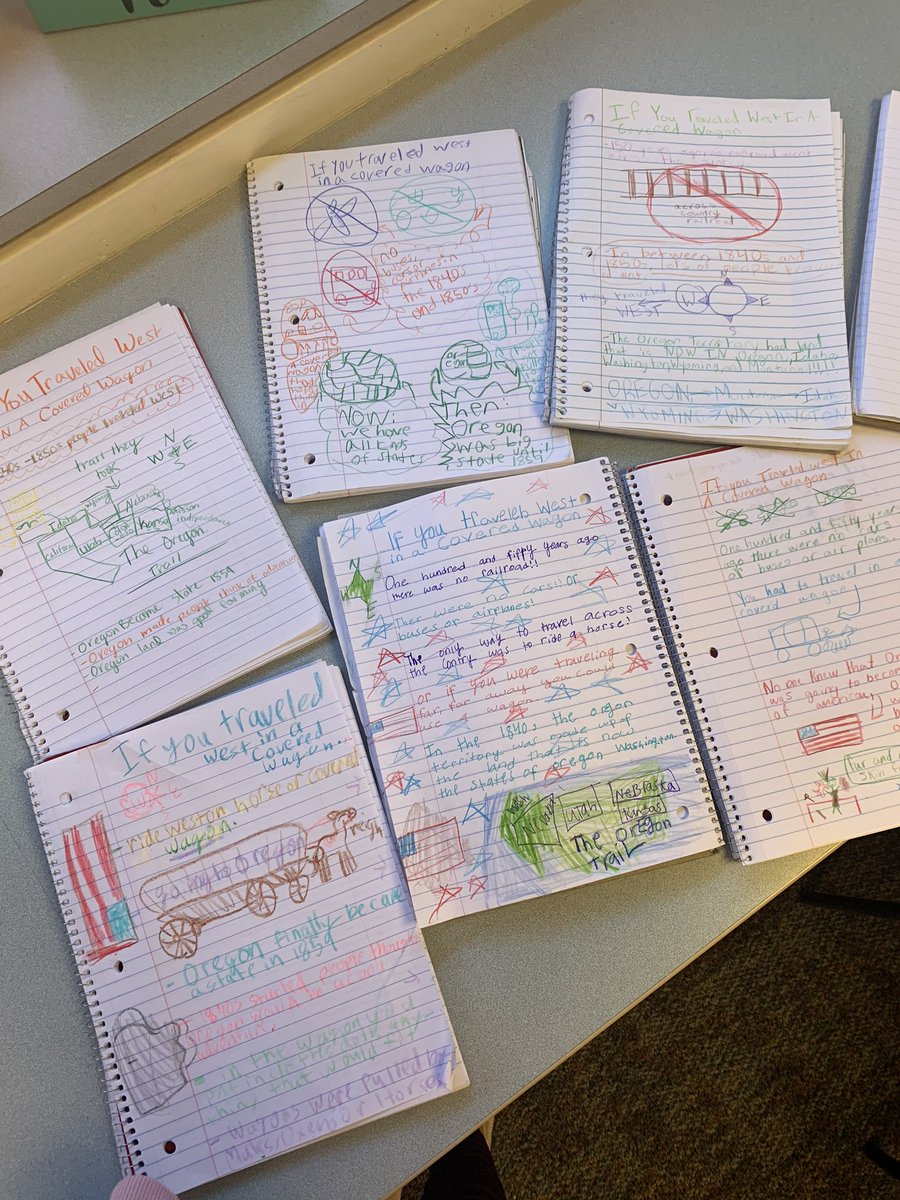 If you traveled west
in a covered wagon
no
buses,
cars or
airplanes in
the 1840s
and 1850s
Now:
we have
all kinds
of states
Then:
Oregon
was big
state until
If You Traveled West In A
Covered Wagon
across
country
railroad
In between 1840s and
1850s, lots of people
West.
they traveled
WEST
N
W
E
S
-The Oregon Territory had land
that is NOW IN Oregon, Idaho
Washington, Wyoming, and
OREGON
WYOMING WASHINGTON
You Traveled West
In A Covered Wagon
-1850s people traveled west
trail they
took
N
W E
S
Idaho
Utah
Kansas
independence
The Oregon
Trail
-Oregon Become state 1859
-Oregon made people think of
-Oregon land was good farming
If you traveled West
in a Covered Wagon
N
One hundred and fiffy years ago
there was no railroad!!
There were no cars! Or
buses or airplanes!
The only way to travel across
the contry was to ride a horse!
or if you were traveling
far, far away you could
use a wagon
In the 1840s the oregon
territory was made up of
the land that is now
the states of oregon washington
Utah
Nebraska
Kansas
The Oregon
Trail
If you Traveled West In
A Covered Wagon
One hundred and fifty year
ago there were no cars
or buses or air planes.
You had to travel in a
coverd wagon
No one knew that Or
was going to become
of american
Fur and
Skin
If you traveled
west in a
covered
wagon.
-ride west on horse or covered
wagon.
going to Oregon
-Oregon finally became
a state in 1859
-1840s started people thought
Oregon would be a good
-in the wagon you
put in
thing that would fit
-Wagons were pulled by
Mules, Oxen or Horses